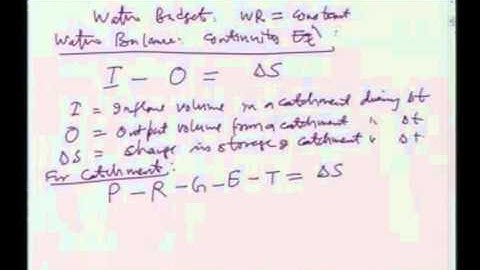 Water Budget: WR = Constant
Water Balance: Continuity Eqn
I - O = ΔS
I = Inflow volume in a catchment during Δt
O = Output volume from a catchment " Δt
ΔS = change in storage of catchment " Δt
For Catchment:
P - R - G - E - T = ΔS